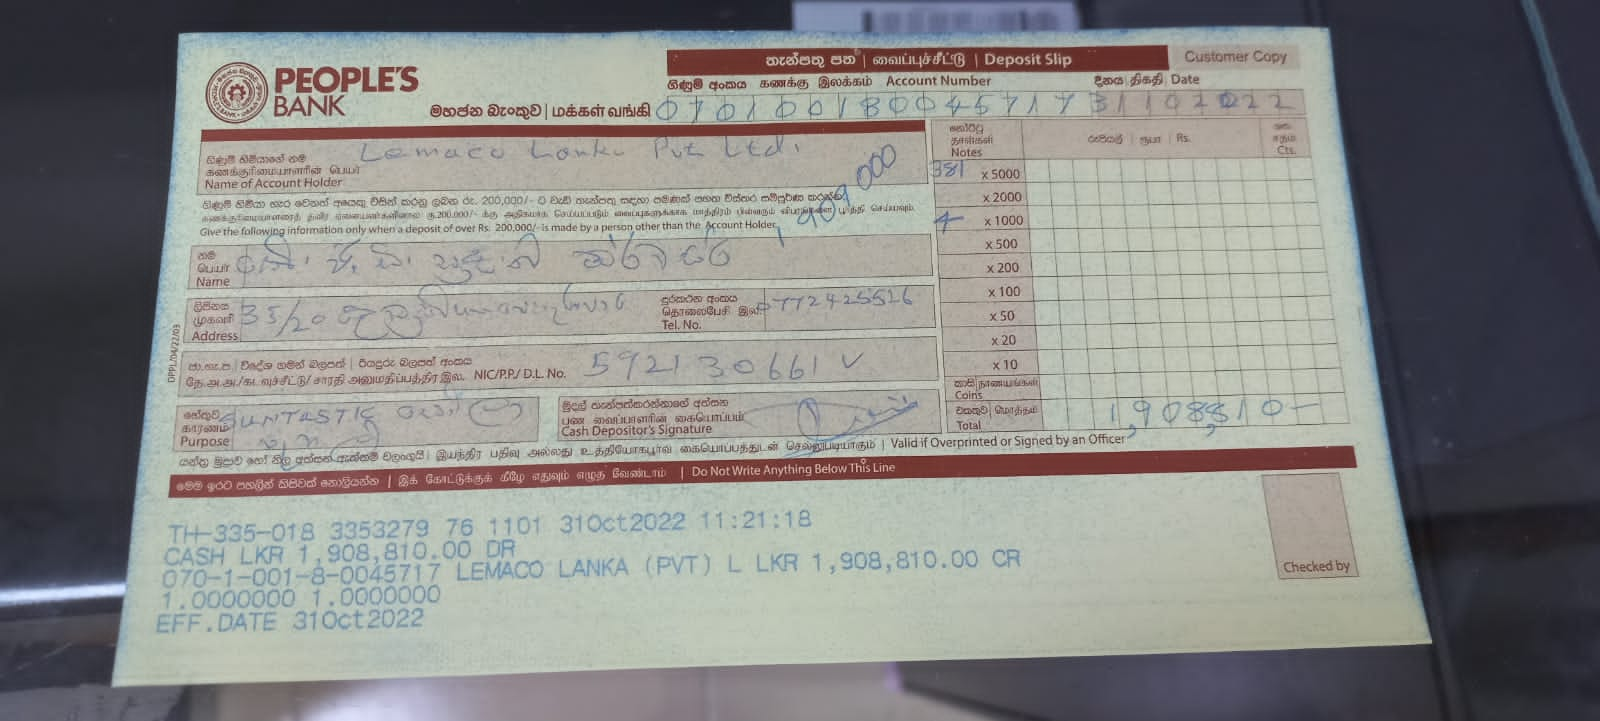 PEOPLE'S
BANK
මහජන බැංකුව | மக்கள் வங்கி
තැන්පතු පත | வைப்புச்சீட்டு | Deposit Slip
Customer Copy
ගිණුම් අංකය கணக்கு இலக்கம் Account Number
දිනය திகதி Date
070100180045717 31102022
ගිණුම් හිමියාගේ නම
கணக்குரிமையாளரின் பெயர்
Name of Account Holder
Lemaco Lanka Pvt Ltd.
ගිණුම් හිමියා හැර වෙනත් අයෙකු විසින් කරනු ලබන රු. 200,000/- ට වැඩි තැන්පතු සඳහා පමණක් පහත විස්තර සම්පූර්ණ කරන්න.
Give the following information only when a deposit of over Rs. 200,000/- is made by a person other than the Account Holder
1 909 000
නම
பெயர்
Name
ලිපිනය
முகவரி
Address
35/20
දුරකථන අංකය
தொலைபேசி இல.
Tel. No.
0772425526
NIC/P.P./ D.L. No.
592130661V
හේතුව
காரணம்
Purpose
SUNTASTIC
මුදල් තැන්පත්කරන්නාගේ අත්සන
பண வைப்பாளரின் கையொப்பம்
Cash Depositor's Signature
නෝට්ටු
தாள்கள்
Notes
රුපියල් | ரூபா | Rs.
ශත
சதம்
Cts.
381 x 5000
x 2000
4 x 1000
x 500
x 200
x 100
x 50
x 20
x 10
කාසි நாணயங்கள்
Coins
එකතුව மொத்தம்
Total
1,908,810-
DPPL/04/22/03
යන්ත්‍ර මුද්‍රාව හෝ නිල අත්සන ඇත්නම් වලංගුයි | இயந்திர பதிவு அல்லது உத்தியோகபூர்வ கையொப்பத்துடன் செல்லுபடியாகும் | Valid if Overprinted or Signed by an Officer
මෙම ඉරට පහලින් කිසිවක් නොලියන්න | இக் கோட்டுக்குக் கீழே எதுவும் எழுத வேண்டாம் | Do Not Write Anything Below This Line
TH-335-018 3353279 76 1101 31Oct2022 11:21:18
CASH LKR 1,908,810.00 DR
070-1-001-8-0045717 LEMACO LANKA (PVT) L LKR 1,908,810.00 CR
1.0000000 1.0000000
EFF.DATE 31Oct2022
Checked by